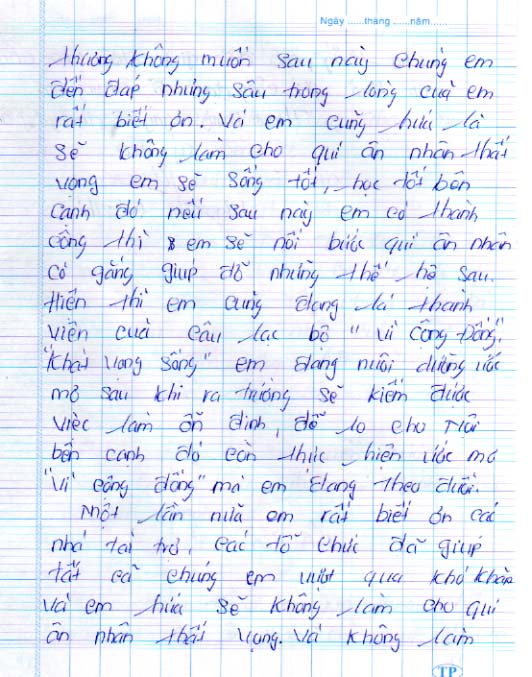 Ngày ......tháng ......năm......
thường không muốn sau này chúng em
đền đáp nhưng sâu trong lòng của em
rất biết ơn. Và em cũng hứa là
sẽ không làm cho quí ân nhân thất
vọng em sẽ sống tốt, học tốt bên
cạnh đó nếu sau này em có thành
công thì em sẽ nối bước quí ân nhân
cố gắng giúp đỡ những thế hệ sau.
Hiện thì em cũng đang là thành
viên của câu lạc bộ " vì Công Đồng".
"Khát vọng sống" em đang nuôi dưỡng ước
mơ sau khi ra trường sẽ kiếm được
việc làm ổn định, để lo cho
bên cạnh đó còn thực hiện ước mơ
"Vì cộng đồng" mà em đang theo đuổi.
Một lần nữa em rất biết ơn các
nhà tài trợ, các tổ chức đã giúp
tất cả chúng em vượt qua khó khăn
và em hứa sẽ không làm cho quí
ân nhân thất vọng. Và không làm
TP